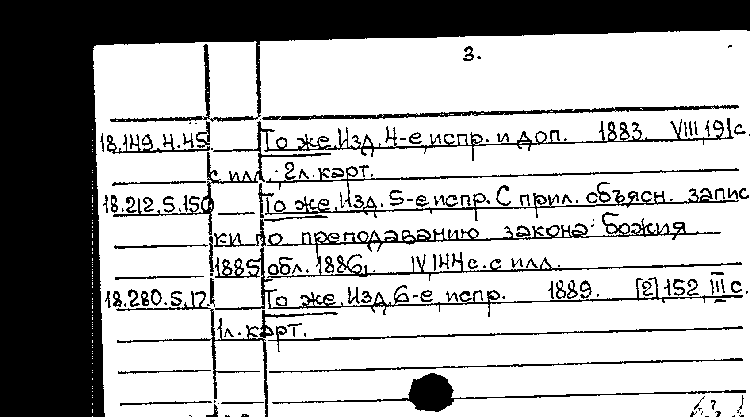 3.
18.149.4.45 То же. Изд. 4-е, испр. и доп. 1883. VIII, 191 с.
с илл.; 2 л. карт.
18.212.5.150 То же. Изд. 5-е, испр. С прил. объясн. запис
ки по преподаванию закона божия
1885 обл. 1886, IV, 144 с. с илл.
18.280.5.17. То же. Изд. 6-е, испр. 1889. [2], 152, III с.
1 л. карт.